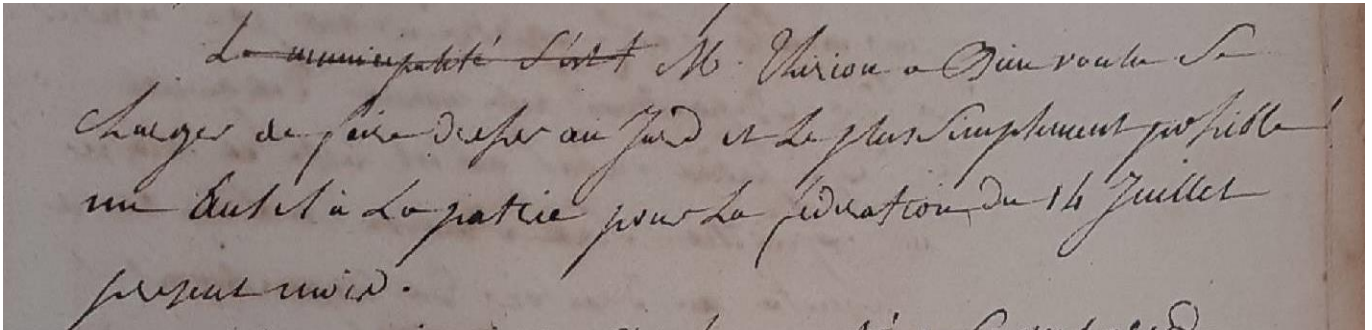 La municipalité s'est M. Thirion a Bien voulu Se
charger de faire dresser au Jard et Le plus Simplement possible
un Autel à La patrie pour La fédération du 14 Juillet
présent mois.